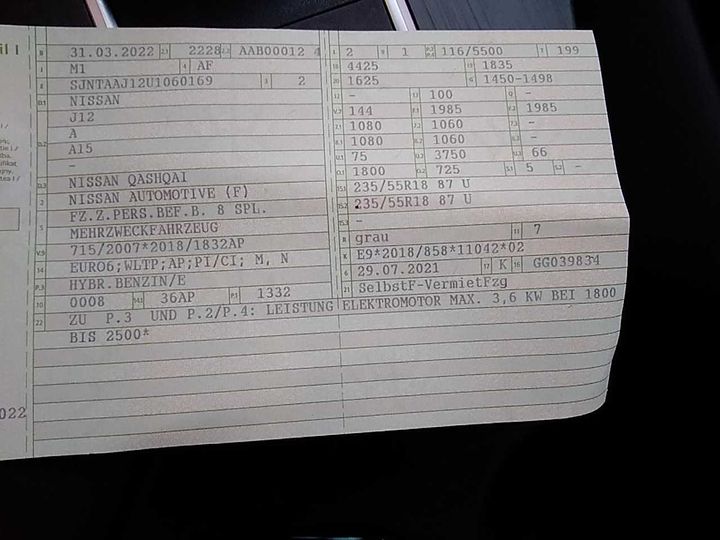 il I
B 31.03.2022 2.1 2228 2.2 AAB00012 4
J M1 4 AF
E SJNTAAJ12U1060169 3 2
D.1 NISSAN
J12
D.2 A
A15
-
D.3 NISSAN QASHQAI
2 NISSAN AUTOMOTIVE (F)
5 FZ.Z.PERS.BEF.B. 8 SPL.
MEHRZWECKFAHRZEUG
V.9 715/2007*2018/1832AP
14 EURO6;WLTP;AP;PI/CI; M, N
P.3 HYBR.BENZIN/E
10 0008 14.1 36AP P.1 1332
22 ZU P.3 UND P.2/P.4: LEISTUNG ELEKTROMOTOR MAX. 3,6 KW BEI 1800
BIS 2500*
L 2 9 1 P.2 P.4 116/5500 T 199
18 4425 19 1835
20 1625 G 1450-1498
12 - 13 100 Q -
V.7 144 F.1 1985 F.2 1985
7.1 1080 7.2 1060 7.3 -
8.1 1080 8.2 1060 8.3 -
U.1 75 U.2 3750 U.3 66
O.1 1800 O.2 725 S.1 5 S.2 -
15.1 235/55R18 87 U
15.2 235/55R18 87 U
15.3 -
R grau 11 7
K E9*2018/858*11042*02
6 29.07.2021 17 K 16 GG039834
21 SelbstF-VermietFzg
022